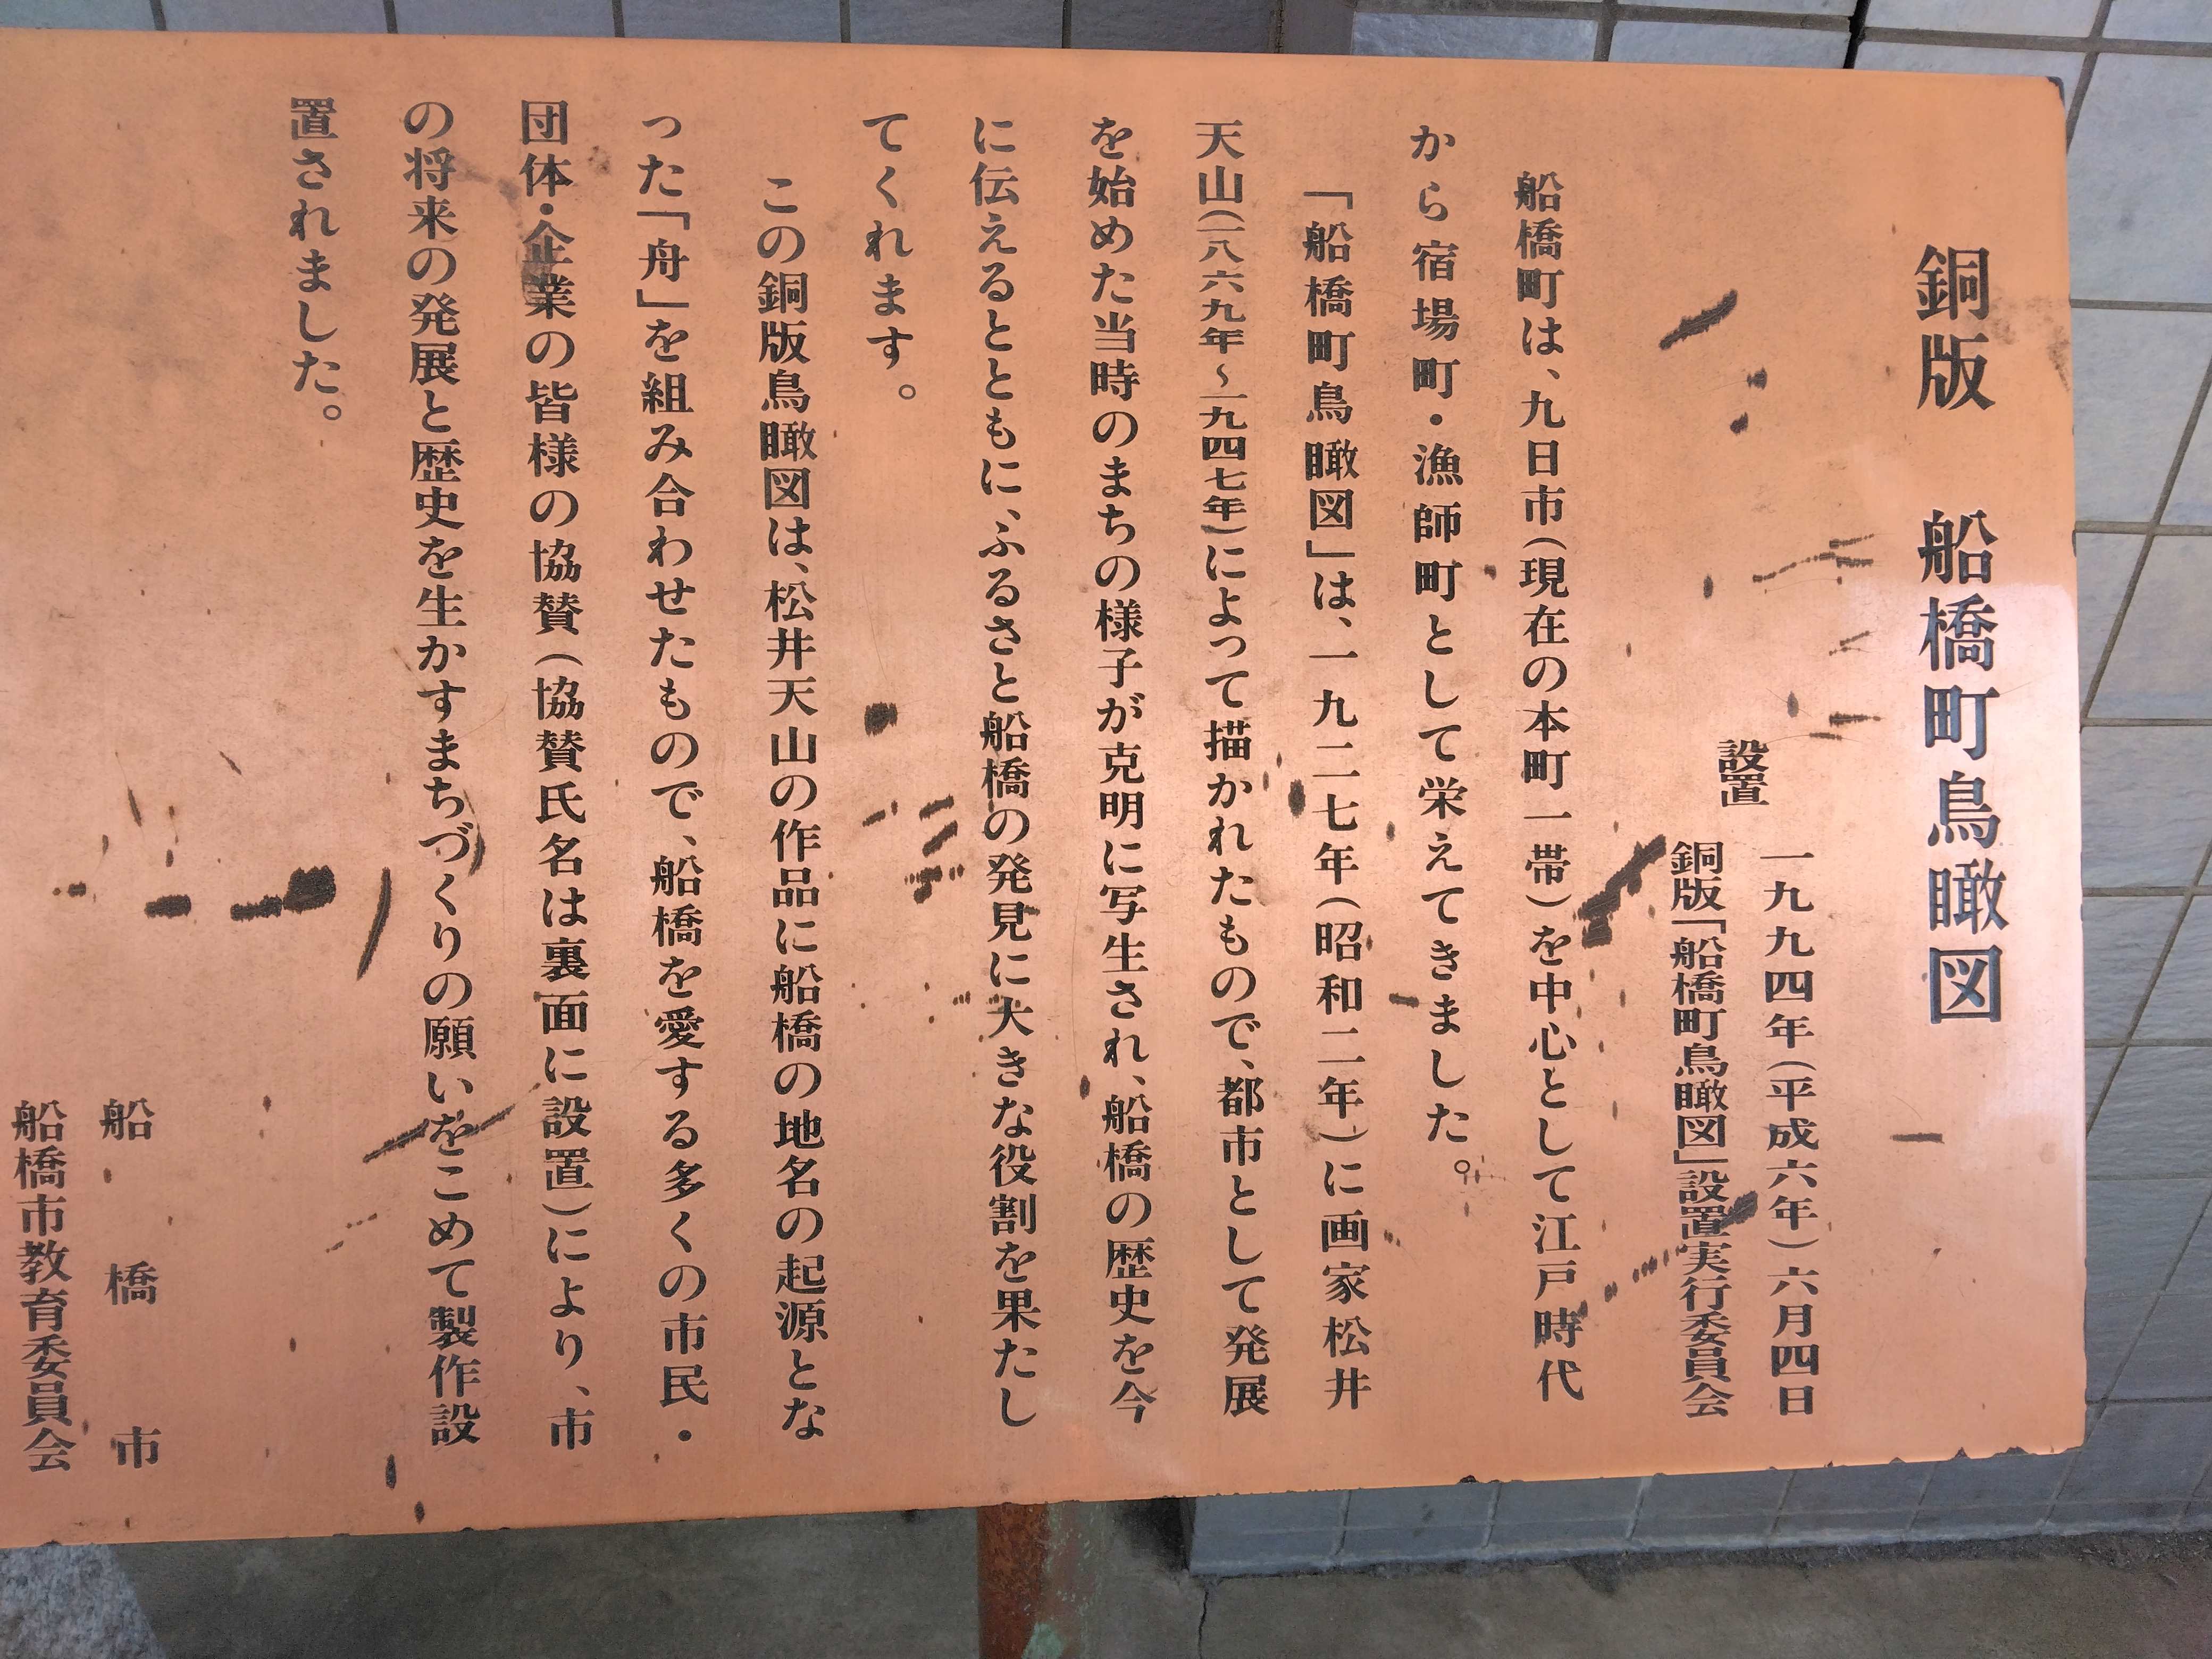 銅版　船橋町鳥瞰図
設置　一九九四年(平成六年)六月四日
銅版「船橋町鳥瞰図」設置実行委員会
船橋町は、九日市(現在の本町一帯)を中心として江戸時代
から宿場町・漁師町として栄えてきました。
「船橋町鳥瞰図」は、一九二七年(昭和二年)に画家松井
天山(一八六九年~一九四七年)によって描かれたもので、都市として発展
を始めた当時のまちの様子が克明に写生され、船橋の歴史を今
に伝えるとともに、ふるさと船橋の発見に大きな役割を果たし
てくれます。
この銅版鳥瞰図は、松井天山の作品に船橋の地名の起源とな
った「舟」を組み合わせたもので、船橋を愛する多くの市民・
団体・企業の皆様の協賛(協賛氏名は裏面に設置)により、市
の将来の発展と歴史を生かすまちづくりの願いをこめて製作設
置されました。
船橋市
船橋市教育委員会